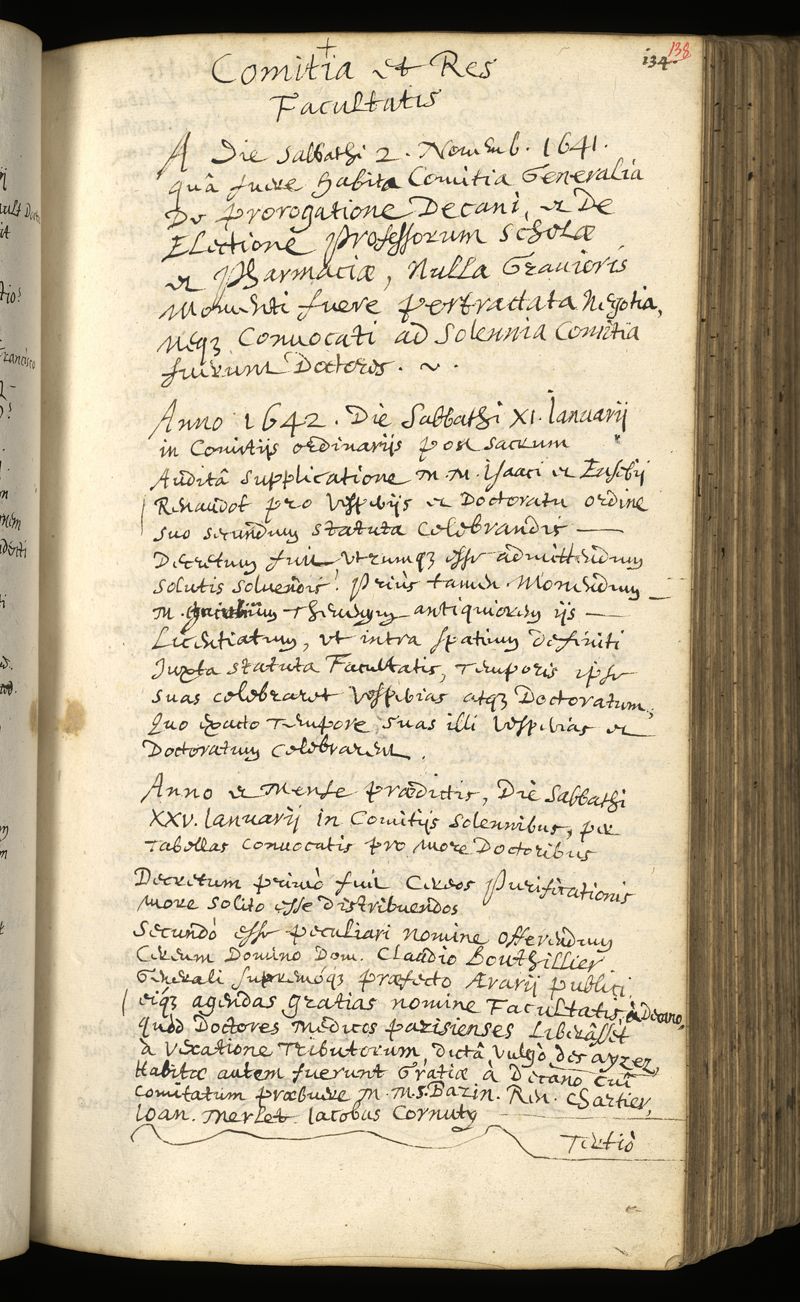 138
134.
Comitia et Res
Facultatis
A Die Sabbathi 2. Novemb. 1641.
quâ fuere habita Comitia Generalia
De prorogatione Decani, et De
Electione Professorum Scholæ
et Pharmaciæ, Nulla Gravioris
Momenti fuere pertractata Negotia,
Neqз Convocati ad Solennia Comitia
fuerunt Doctores. ~ .
Anno 1642. Die Sabbathi XI. Ianuarij
in Comitijs ordinarijs post sacrum
Auditâ supplicatione M. M. Isaaci et Eusebij
Renaudot pro Vesperijs et Doctoratu ordine
suo secundum statuta celebrandis —
Decretum fuit, utrumqз esse admittendum
solutis solvendis. Priùs tamen Monendum
M. antiquiorem ijs —
Licentiatum, ut intra spatium definiti
Juxta statuta Facultatis, Temporis ipse
suas celebraret Vesperias atqз Doctoratum,
Quo exacto Tempore suas illi Vesperias et
Doctoratum celebrarent.
Anno et Mense prædictis, Die Sabbathi
XXV. Ianuarij in Comitijs solennibus, per
Tabellas convocatis pro More Doctoribus
Decretum primò fuit Cereos Purificationis
More solito esse distribuendos
Secundò esse peculiari nomine offerendum
Cereum Domino Dom. Claudio Bouthillier
Generali supremóqз præfecto Ærarij publici,
eíqз agendas gratias nomine Facultatis, à Decano,
quòd Doctores Medicos parisienses Liberâsset
à Vexatione Tributorum, dictâ vulgò des ayzez,
Habitæ autem fuerunt Gratiæ à Decano cui
comitatum præbuere M. M. S. Bazin. Ren. Chartier,
Ioan. Merlet Iacobus Cornuty
Tertiò